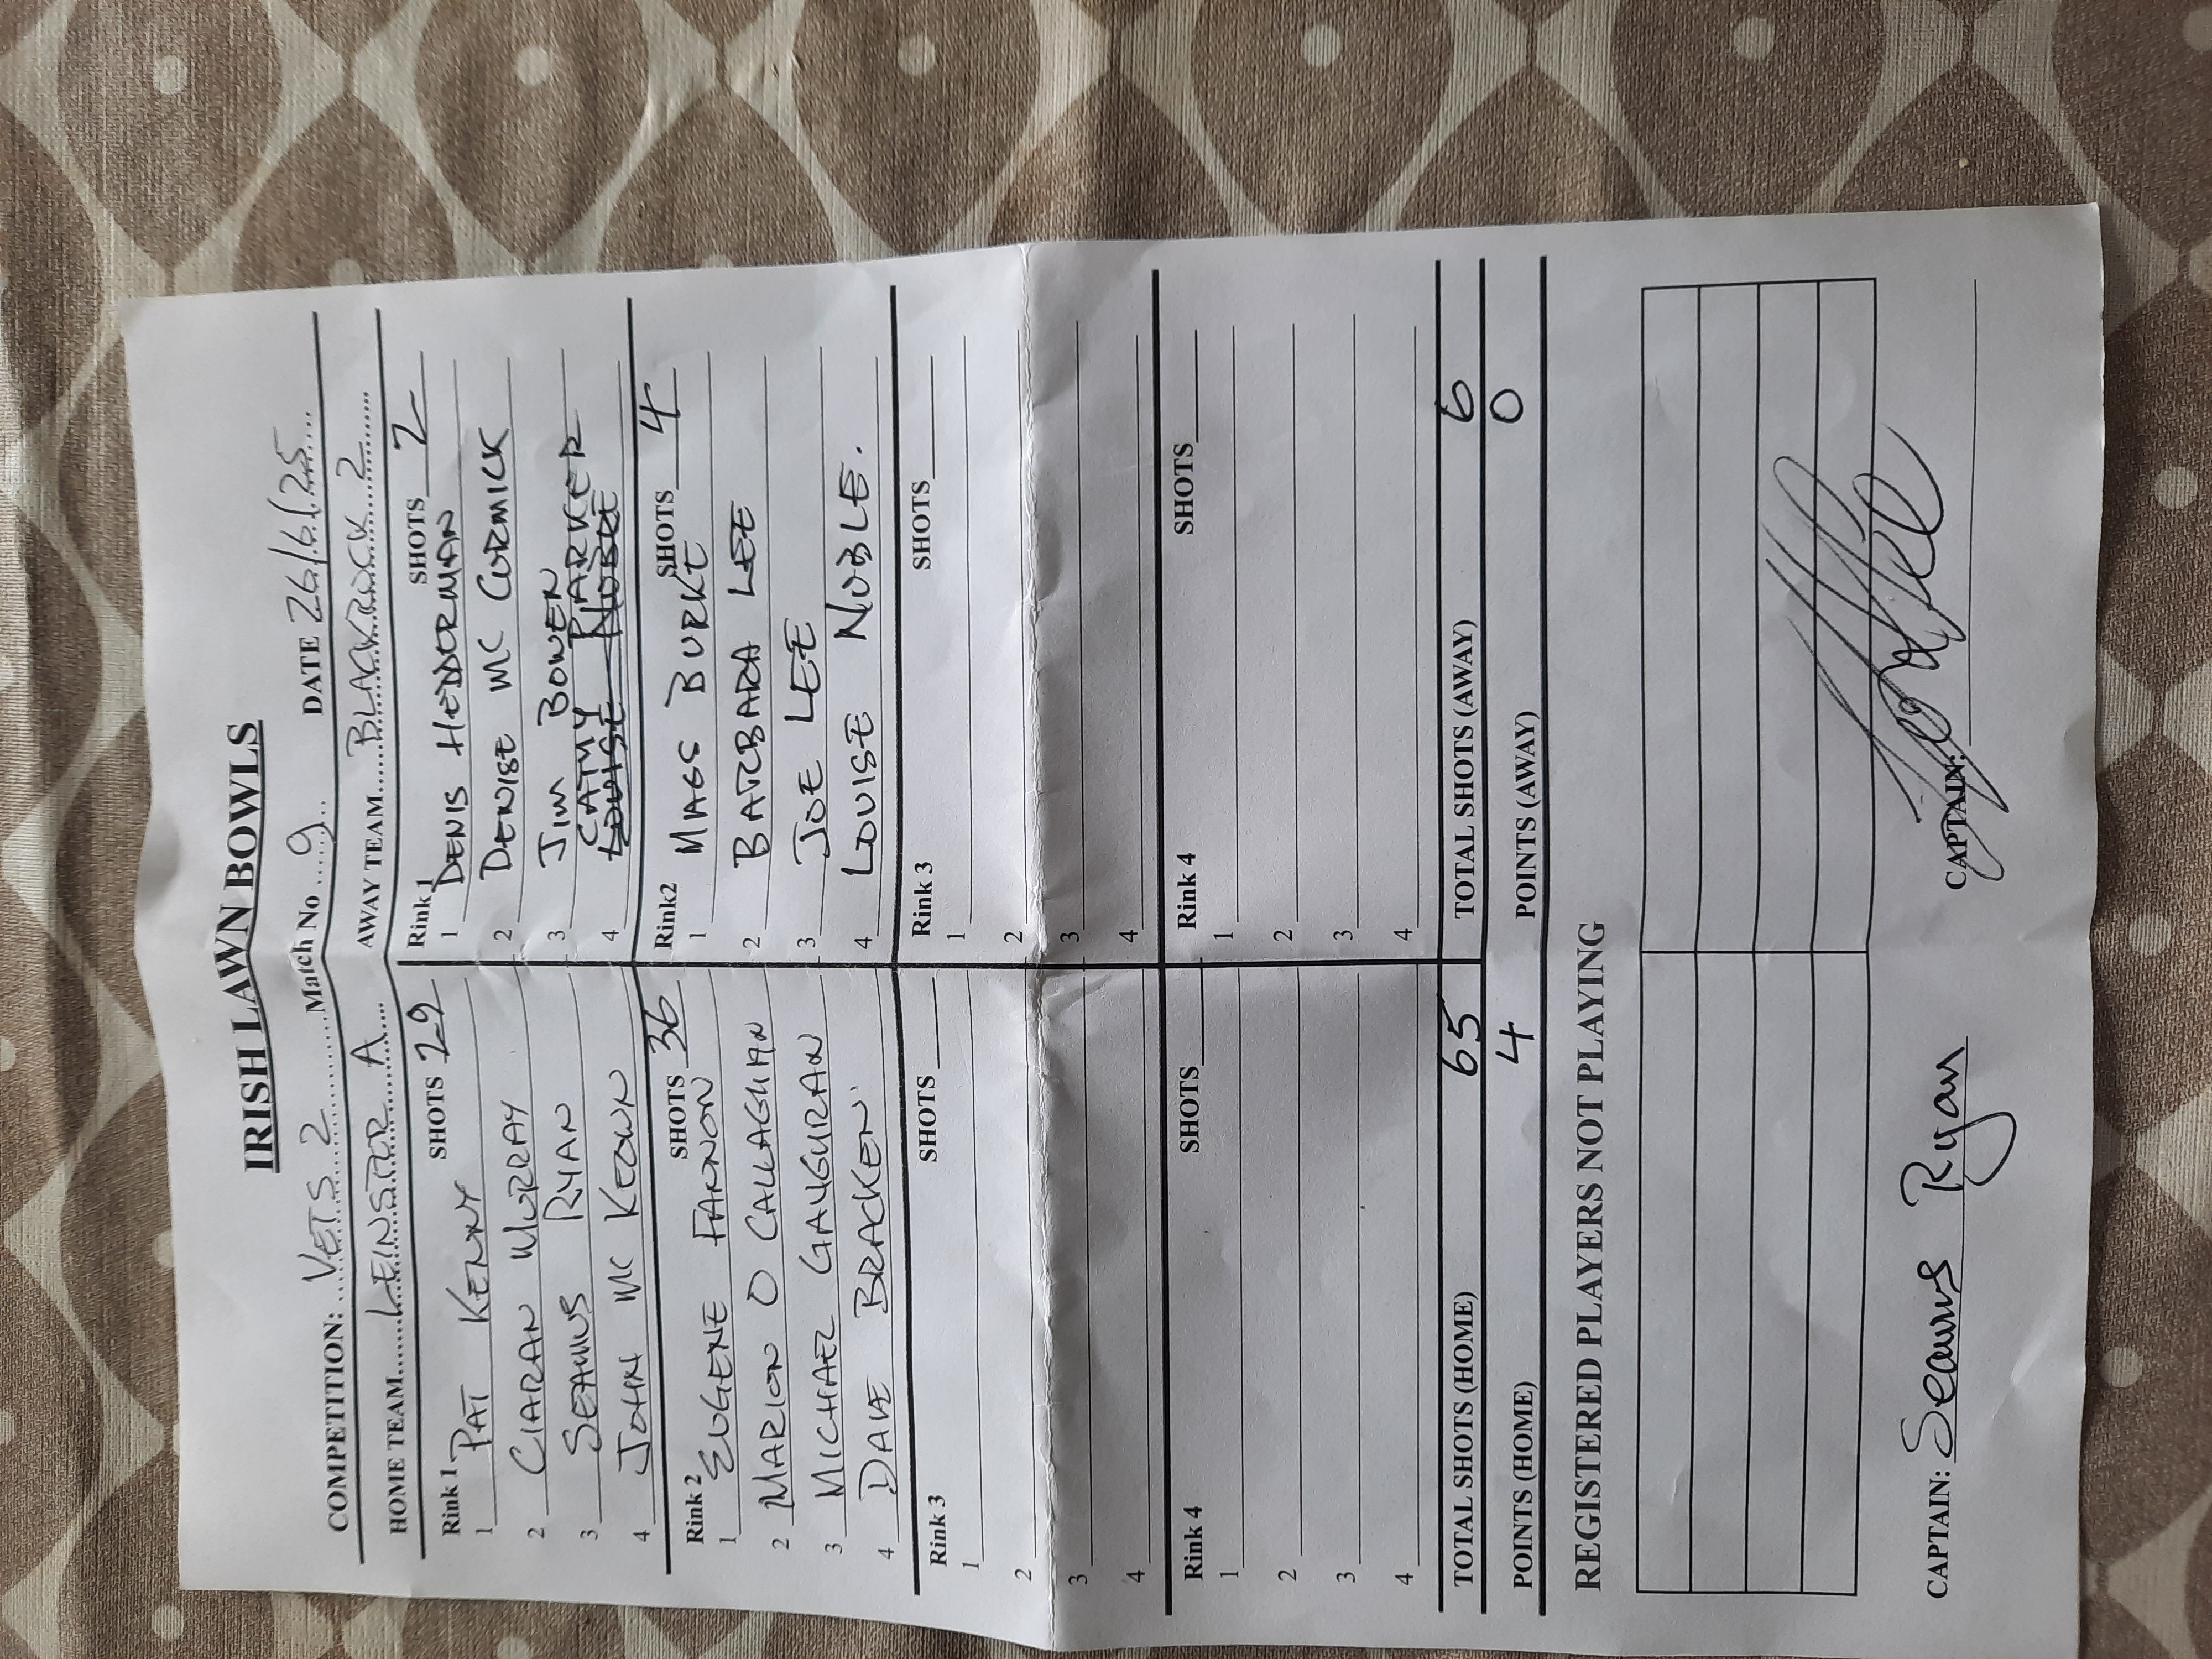 IRISH LAWN BOWLS
COMPETITION: VETS 2 Match No 9 DATE 26/6/25
HOME TEAM LEINSTER A AWAY TEAM BLACKROCK 2
Rink 1 SHOTS 29 Rink 1 SHOTS 2
1 PAT KENNY 1 DENIS HEDDERMAN
2 CIARAN MURRAY 2 DENISE MC CORMICK
3 SEAMUS RYAN 3 JIM BOWEN
4 JOHN MC KEOWN 4 CATHY PARKER
LOUISE NOBLE
Rink 2 SHOTS 36 Rink2 SHOTS 4
1 EUGENE FANNON 1 MAGS BURKE
2 MARION O CALLAGHAN 2 BARBARA LEE
3 MICHAEL GAUGURAN 3 JOE LEE
4 DAVE BRACKEN 4 LOUISE NOBLE.
Rink 3 SHOTS Rink 3 SHOTS
1 1
2 2
3 3
4 4
Rink 4 SHOTS Rink 4 SHOTS
1 1
2 2
3 3
4 4
TOTAL SHOTS (HOME) 65 TOTAL SHOTS (AWAY) 6
POINTS (HOME) 4 POINTS (AWAY) 0
REGISTERED PLAYERS NOT PLAYING
CAPTAIN: Seamus Ryan CAPTAIN: